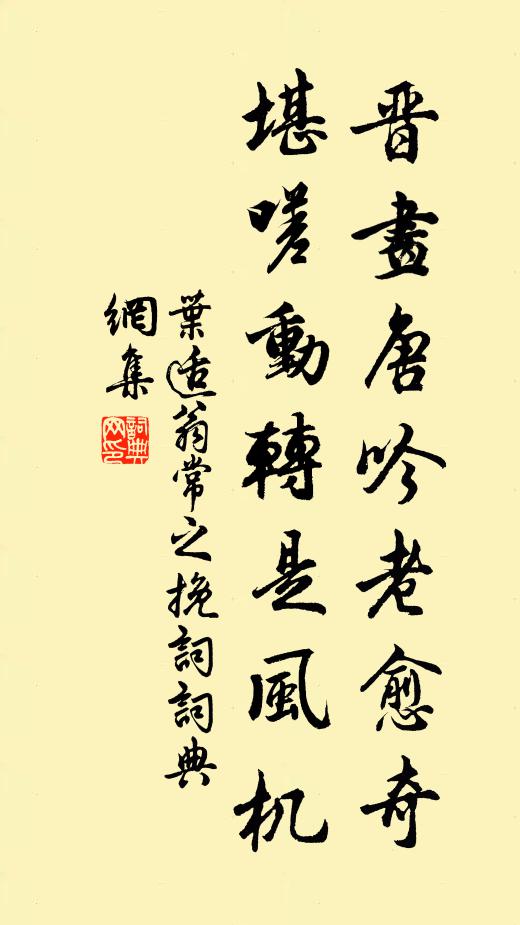 晋畫唐吟老愈奇
堪嗟動轉是風机
葉适翁常之挽詞詞典
網集
詞典
网印